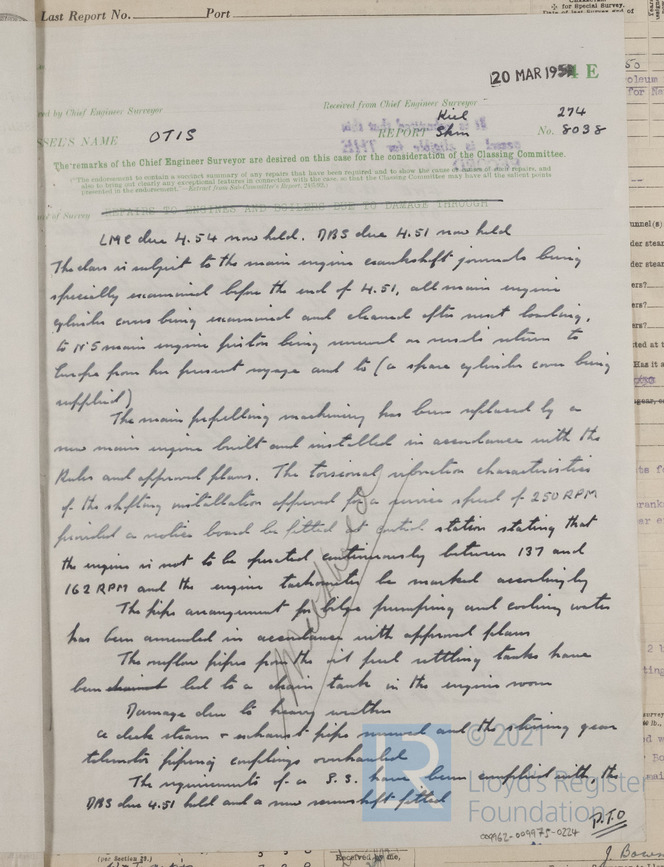 Last Report No. Port
20 MAR 1954 E
ved by Chief Engineer Surveyor Received from Chief Engineer Surveyor
SSEL'S NAME OTIS REPORT Kiel Skm No. 274 8038
The remarks of the Chief Engineer Surveyor are desired on this case for the consideration of the Classing Committee.
("The endorsement to contain a succinct summary of any repairs that have been required and to show the cause or causes of such repairs, and
also to bring out clearly any exceptional features in connection with the case, so that the Classing Committee may have all the salient points
presented in the endorsement."—Extract from Sub-Committee's Report,
of Survey REPAIRS TO ENGINES AND BOILERS DUE TO DAMAGE THROUGH
LMC due 4.54 now held. DBS due 4.51 now held
The class is subject to the main engine crankshaft journals being
specially examined before the end of 4.51, all main engine
cylinder covers being examined and cleaned after next loading,
to No 5 main engine piston being renewed on vessels return to
Europe from her present voyage and to (a spare cylinder cover being
supplied)
The main propelling machinery has been replaced by a
new main engine built and installed in accordance with the
Rules and approved plans. The torsional vibration characteristics
of the shafting installation approved for a service speed of 250 RPM
provided a notice board be fitted at control station stating that
the engine is not to be operated continuously between 137 and
162 RPM and the engine tachometer be marked accordingly
The pipe arrangement for bilge pumping and cooling water
has been amended in accordance with approved plans
The overflow pipes from the oil fuel settling tanks have
been led to a drain tank in the engine room
Damage due to heavy weather
a deck steam + exhaust pipe renewed and the steering gear
telemotor piping couplings overhauled
The requirements of a S.S. have been complied with, the
DBS due 4.51 held and a new screwshaft fitted
P.T.O
© 2021
LR
Lloyd's Register
Foundation
009962-009975-0224
(per Section 29.) Received by me,
J. Bow